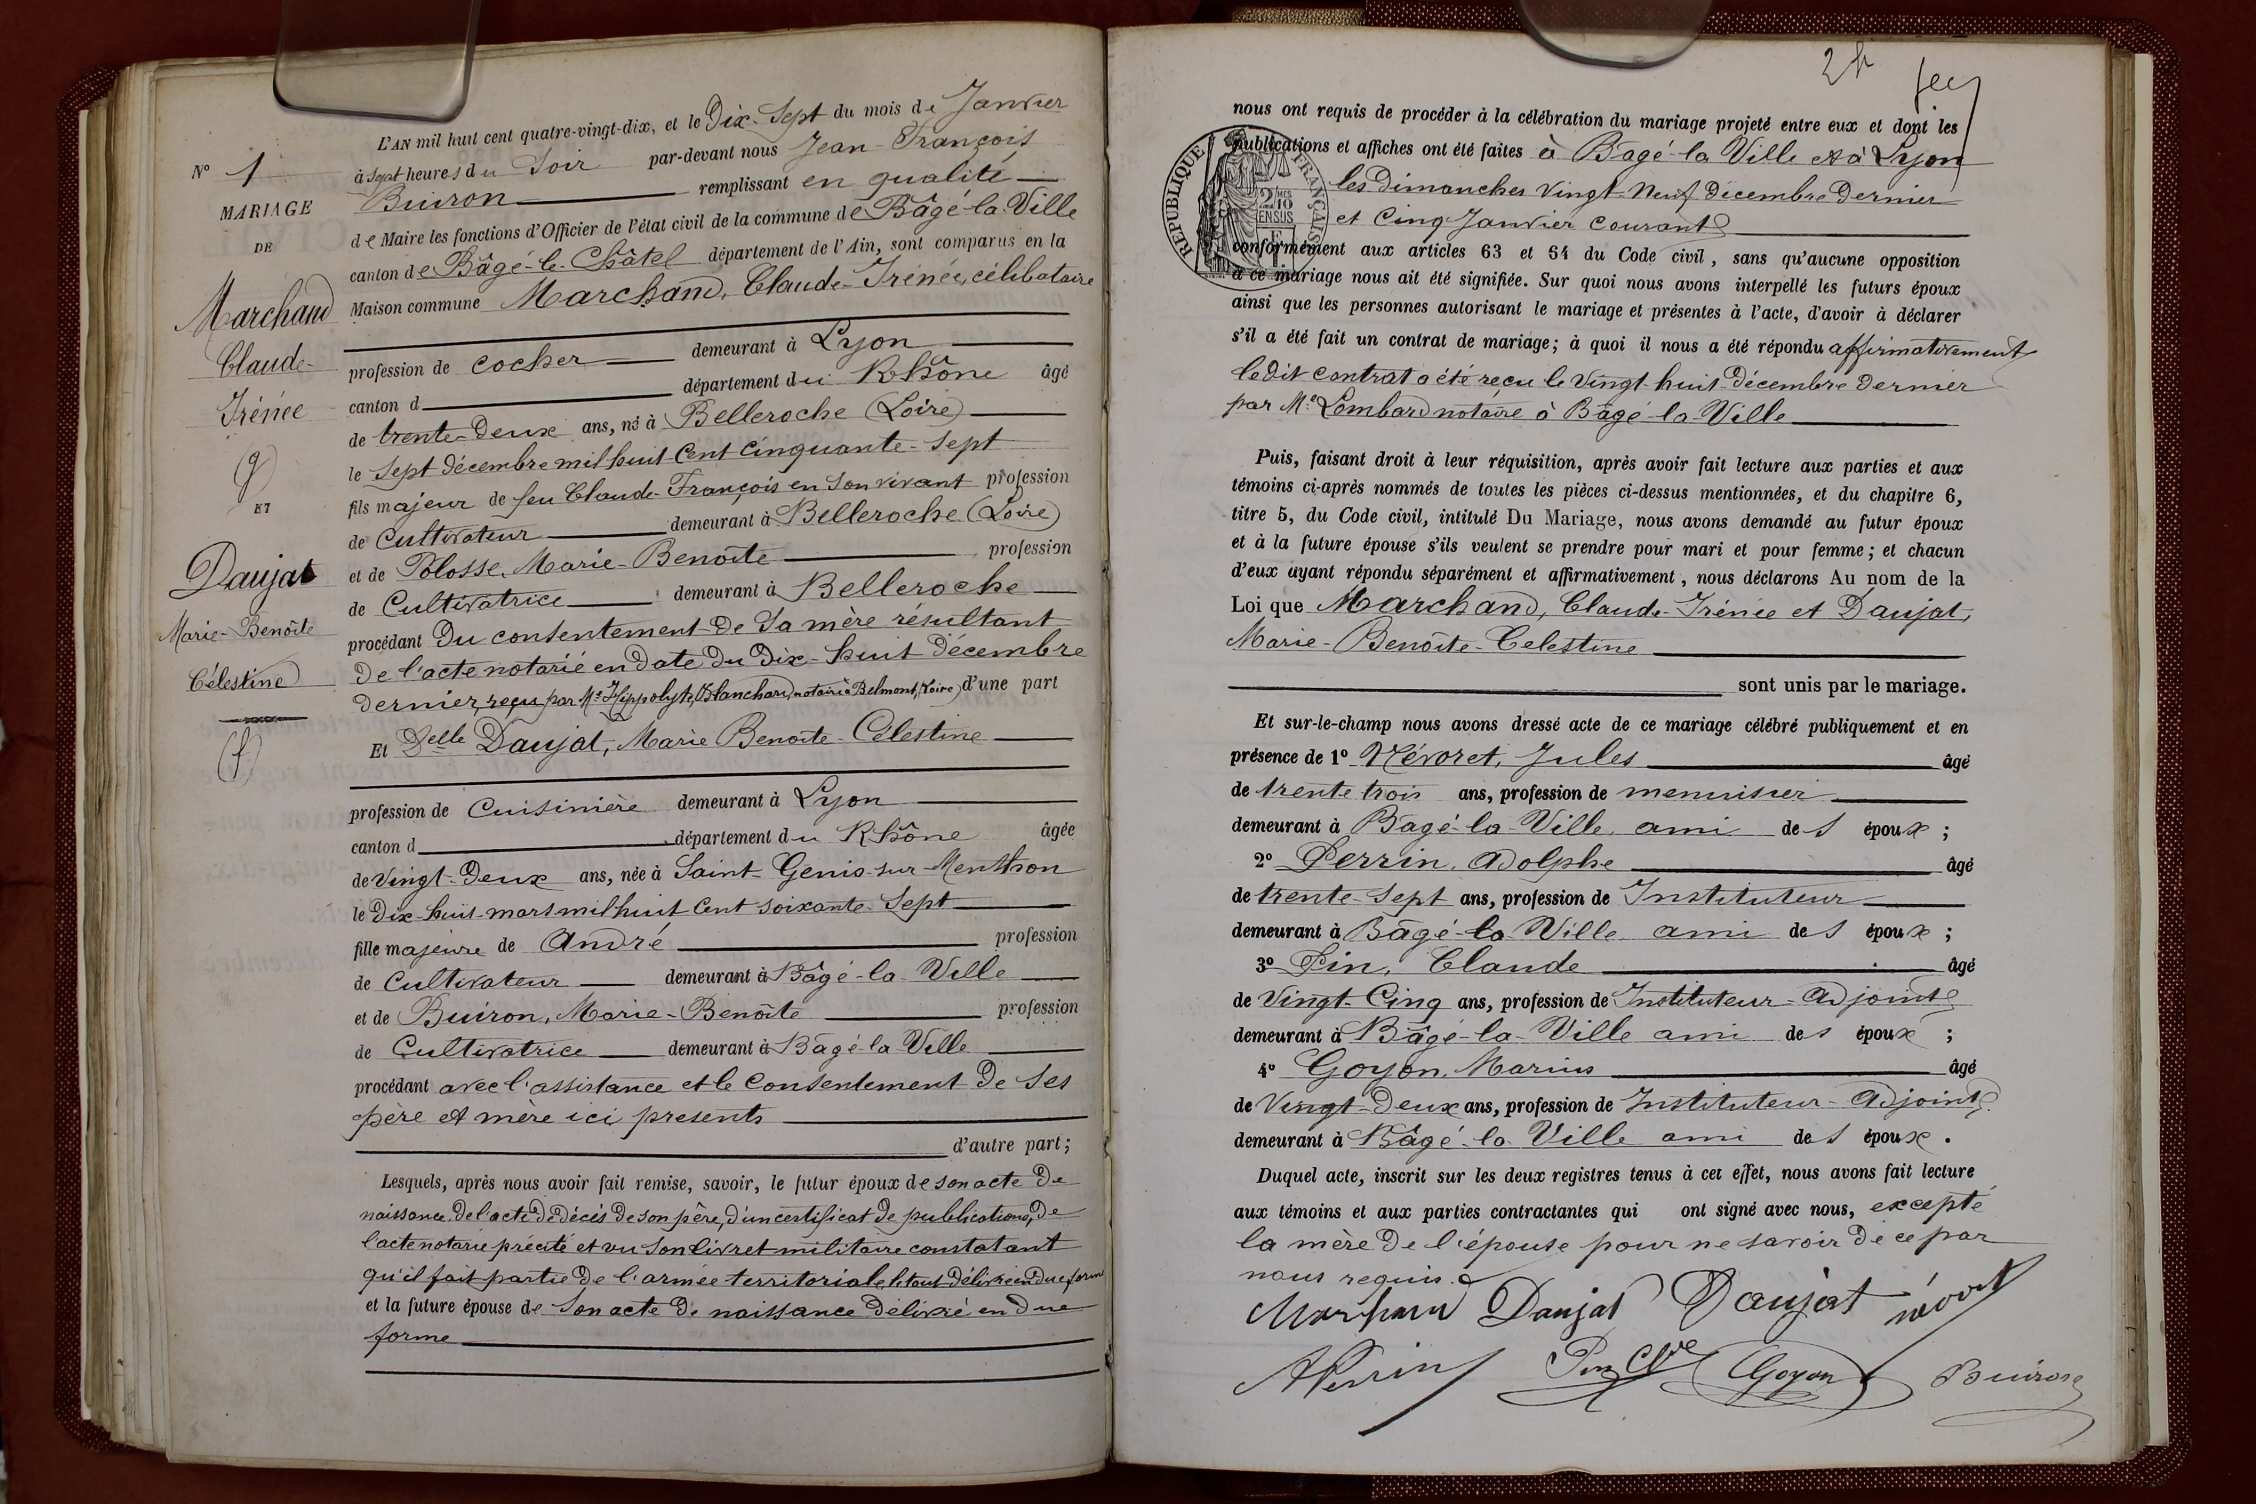 N° 1
MARIAGE
DE
Marchand
Claude-
Irénée
ET
Daujat
Marie-Benoîte
Célestine
L'AN mil huit cent quatre-vingt-dix, et le Dix-Sept du mois de Janvier
à sept heures du Soir par-devant nous Jean-François
Buiron remplissant en qualité
de Maire les fonctions d'Officier de l'état civil de la commune de Bâgé-la-Ville
canton de Bâgé-le-Châtel département de l'Ain, sont comparus en la
Maison commune Marchand, Claude-Irénée, célibataire
profession de cocher demeurant à Lyon
canton d département du Rhône âgé
de trente-Deux ans, né à Belleroche (Loire)
le sept décembre mil huit Cent Cinquante-Sept
fils majeur de feu Claude-François en son vivant profession
de Cultivateur demeurant à Belleroche (Loire)
et de Polosse, Marie-Benoîte profession
de Cultivatrice demeurant à Belleroche
procédant Du consentement De Sa mère résultant
De l'acte notarié en Date Du Dix-huit Décembre
dernier, reçu par Me Hippolyte Blanchard, notaire à Belmont, (Loire) d'une part
Et Delle Daujat, Marie Benoîte-Célestine
profession de Cuisinière demeurant à Lyon
canton d département du Rhône âgée
de Vingt-Deux ans, née à Saint-Genis-sur-Menthon
le Dix-huit mars mil huit Cent soixante-Sept
fille majeure de André profession
de Cultivateur demeurant à Bâgé-la-Ville
et de Buiron, Marie-Benoîte profession
de Cultivatrice demeurant à Bâgé-la-Ville
procédant avec l'assistance et le Consentement De Ses
père et mère ici présents
d'autre part;
Lesquels, après nous avoir fait remise, savoir, le futur époux de son acte De
naissance, De l'acte De Décès De son père, D'un certificat De publications, De
l'acte notarié précité et vu Son livret militaire constatant
qu'il fait partie De l'armée territoriale, le tout Délivré en Due forme
et la future épouse de Son acte De naissance Délivré en Due
forme
nous ont requis de procéder à la célébration du mariage projeté entre eux et dont les
publications et affiches ont été faites à Bâgé-la-Ville et à Lyon
les Dimanches Vingt-Neuf Décembre Dernier
et Cinq Janvier courant
RÉPUBLIQUE FRANÇAISE
conformément aux articles 63 et 64 du Code civil, sans qu'aucune opposition
à ce mariage nous ait été signifiée. Sur quoi nous avons interpellé les futurs époux
ainsi que les personnes autorisant le mariage et présentes à l'acte, d'avoir à déclarer
s'il a été fait un contrat de mariage; à quoi il nous a été répondu affirmativement
le dit contrat a été reçu le Vingt-huit Décembre Dernier
par Me Lombard notaire à Bâgé-la-Ville
Puis, faisant droit à leur réquisition, après avoir fait lecture aux parties et aux
témoins ci-après nommés de toutes les pièces ci-dessus mentionnées, et du chapitre 6,
titre 5, du Code civil, intitulé Du Mariage, nous avons demandé au futur époux
et à la future épouse s'ils veulent se prendre pour mari et pour femme; et chacun
d'eux ayant répondu séparément et affirmativement, nous déclarons Au nom de la
Loi que Marchand, Claude-Irénée et Daujat,
Marie-Benoîte-Celestine
sont unis par le mariage.
Et sur-le-champ nous avons dressé acte de ce mariage célébré publiquement et en
présence de 1° Névoret, Jules âgé
de trente trois ans, profession de menuisier
demeurant à Bâgé-la-Ville ami des époux;
2° Perrin, Adolphe âgé
de trente-sept ans, profession de Instituteur
demeurant à Bâgé-la-Ville ami des époux;
3° Pin, Claude âgé
de Vingt-Cinq ans, profession de Instituteur-Adjoint
demeurant à Bâgé-la-Ville ami des époux;
4° Goyon, Marius âgé
de Vingt-Deux ans, profession de Instituteur-Adjoint
demeurant à Bâgé-la-Ville ami des époux.
Duquel acte, inscrit sur les deux registres tenus à cet effet, nous avons fait lecture
aux témoins et aux parties contractantes qui ont signé avec nous, excepté
la mère De l'épouse pour ne savoir De ce par
nous requis.
Marchand Daujat Daujat Névoret
APerrin Pin Cde Goyon Buiron